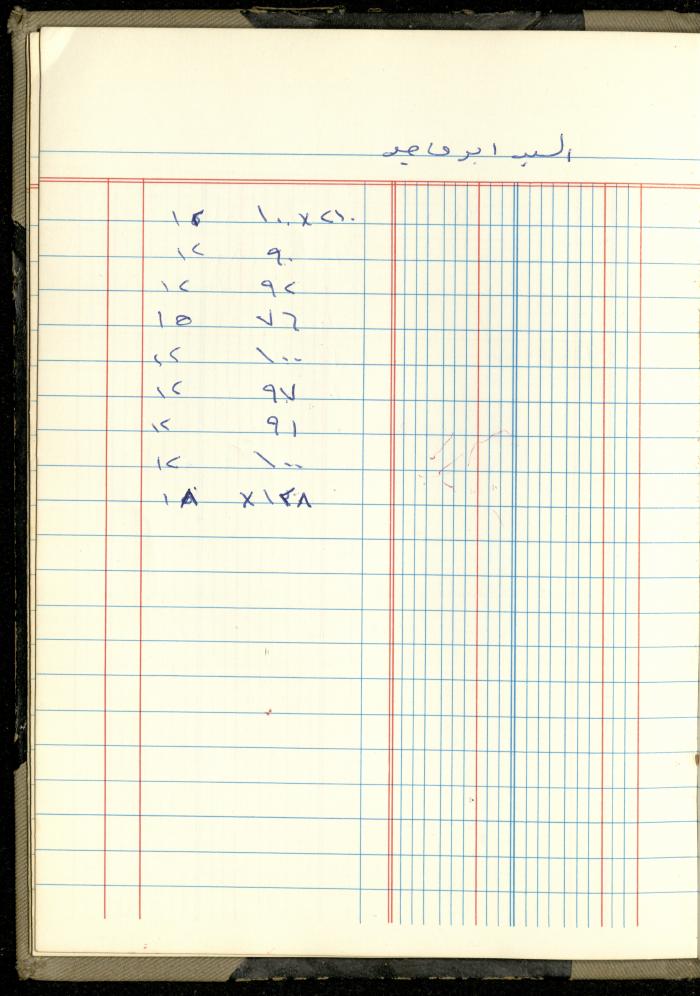 السيد ابو ماجد
١٢ ١٠٠x٢١٠
١٢ ٩٠
١٢ ٩٢
١٥ ٧٦
١٢ ١٠٠
١٢ ٩٧
١٢ ٩١
١٢ ١٠٠
١٨ x١٢٨